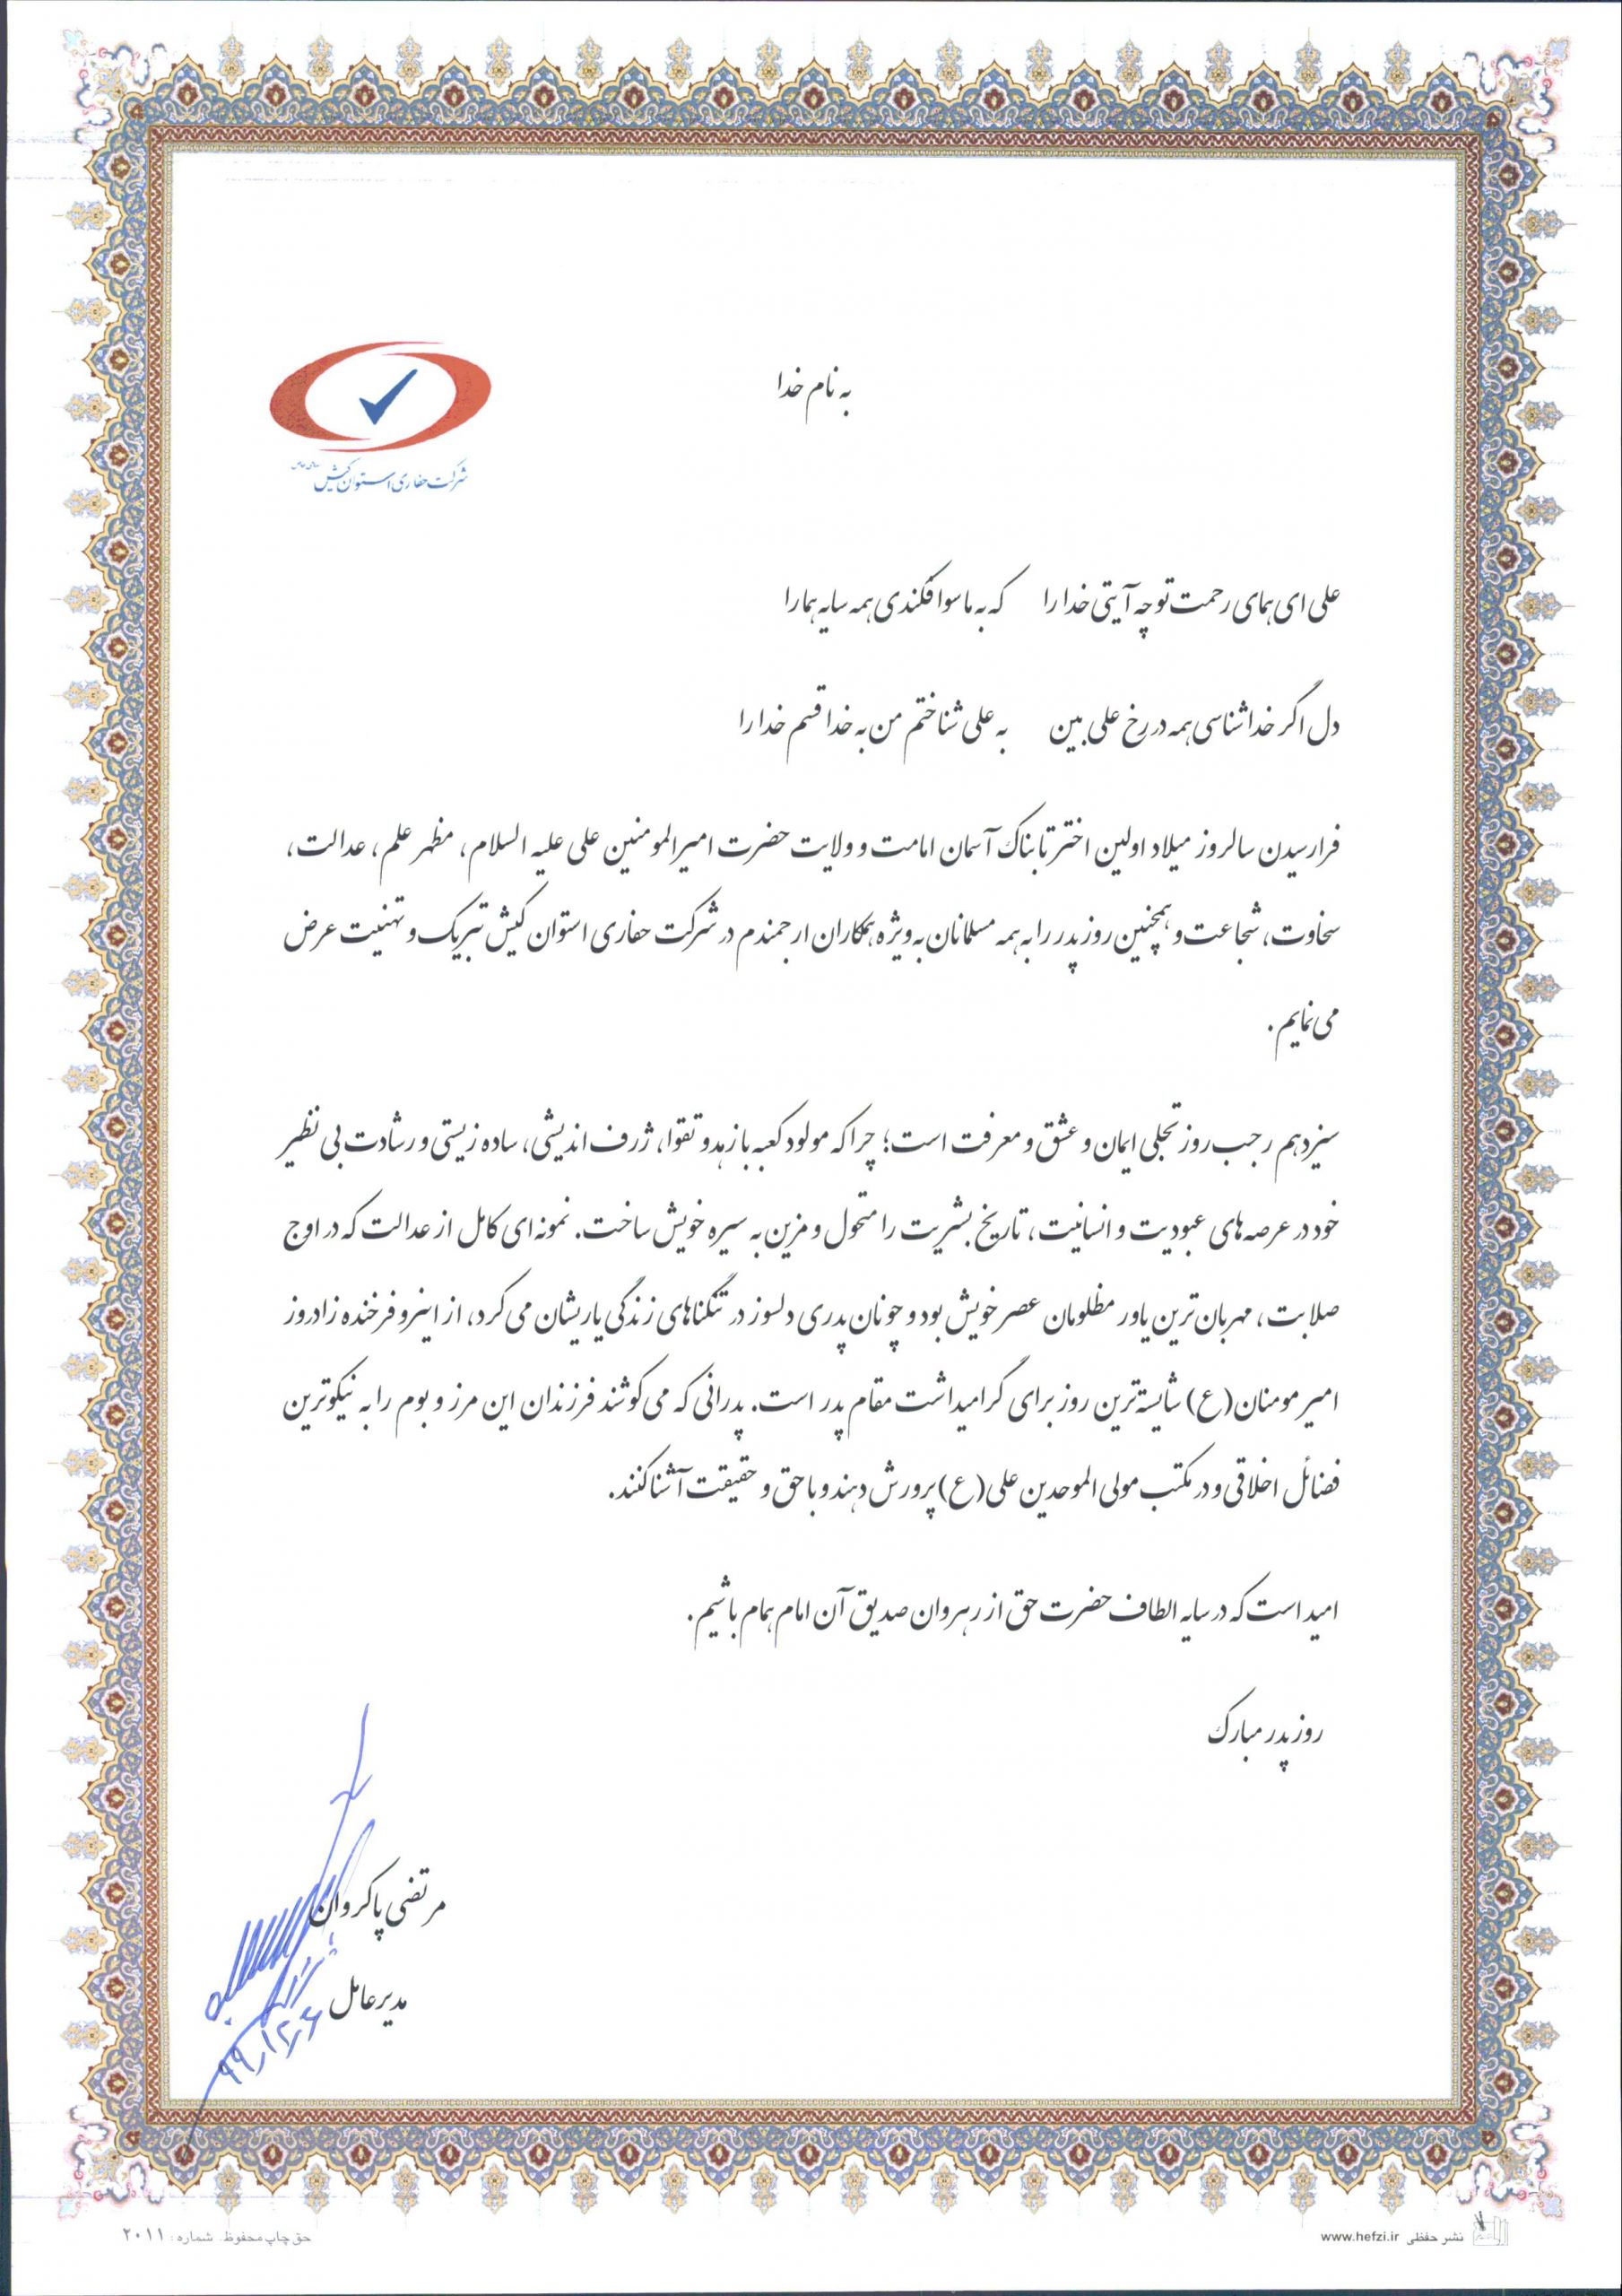 به نام خدا
شرکت حفاری استوان کیش سهامی خاص
علی ای همای رحمت تو چه آیتی خدا را که به ماسوا فکندی همه سایه هما را
دل اگر خداشناسی همه در رخ علی بین به علی شناختم من به خدا قسم خدا را
فرارسیدن سالروز میلاد اولین اختر تابناک آسمان امامت و ولایت حضرت امیرالمومنین علی علیه السلام، مظهر علم، عدالت،
سخاوت، شجاعت و همچنین روز پدر را به همه مسلمانان به ویژه همکاران ارجمندم در شرکت حفاری استوان کیش تبریک و تهنیت عرض
می نمایم.
سیزدهم رجب روز تجلی ایمان و عشق و معرفت است؛ چرا که مولود کعبه با زهد و تقوا، ژرف اندیشی، ساده زیستی و رشادت بی نظیر
خود در عرصه های عبودیت و انسانیت، تاریخ بشریت را متحول و مزین به سیره خویش ساخت. نمونه ای کامل از عدالت که در اوج
صلابت، مهربان ترین یاور مظلومان عصر خویش بود و چونان پدری دلسوز در تنگناهای زندگی یاریشان می کرد، از اینرو فرخنده زادروز
امیر مومنان(ع) شایسته ترین روز برای گرامیداشت مقام پدر است. پدرانی که می کوشند فرزندان این مرز و بوم را به نیکوترین
فضائل اخلاقی و در مکتب مولی الموحدین علی(ع) پرورش دهند و با حق و حقیقت آشنا کنند.
امید است که در سایه الطاف حضرت حق از رهروان صدیق آن امام همام باشیم.
روز پدر مبارک
مرتضی پاکروان
مدیرعامل
۹۹/۱۲/۶
حق چاپ محفوظ شماره: ۲۰۱۱
نشر حفظی www.hefzi.ir